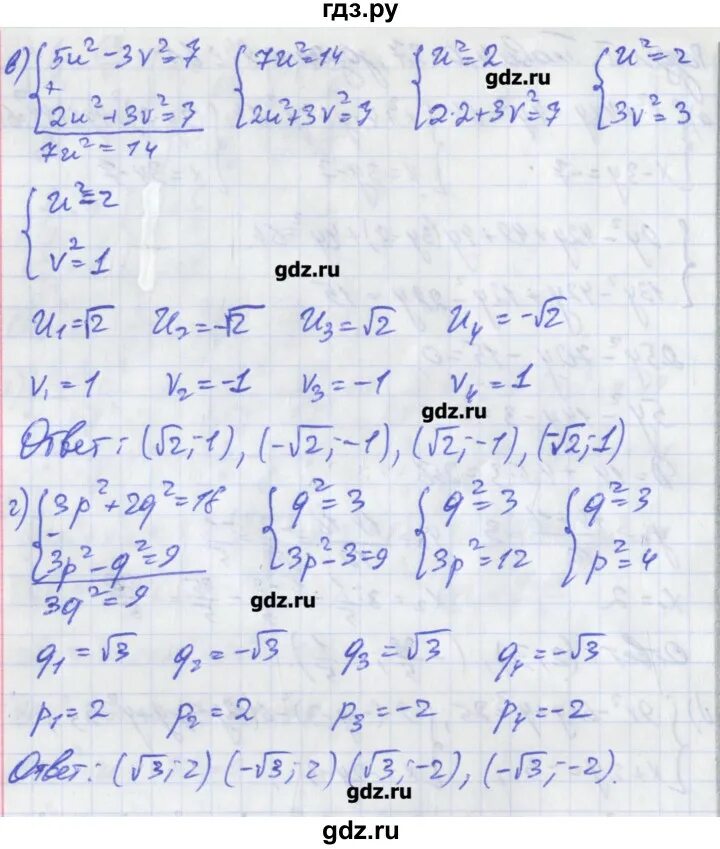 гдз.ру
в) { 5u² - 3v² = 7 { 7u² = 14 { u² = 2 { u² = 2
+ gdz.ru
2u² + 3v² = 7 2u² + 3v² = 7 2·2 + 3v² = 7 3v² = 3
7u² = 14
{ u² = 2
v² = 1
gdz.ru
u₁ = √2 u₂ = -√2 u₃ = √2 u₄ = -√2
v₁ = 1 v₂ = -1 v₃ = -1 v₄ = 1
gdz.ru
Ответ: (√2; 1), (-√2; -1), (√2; -1), (-√2; 1)
г) { 3p² + 2q² = 18 { q² = 3 { q² = 3 { q² = 3
-
3p² - q² = 9 3p² - 3 = 9 3p² = 12 p² = 4
3q² = 9
gdz.ru
q₁ = √3 q₂ = -√3 q₃ = √3 q₄ = -√3
p₁ = 2 p₂ = 2 p₃ = -2 p₄ = -2
Ответ: (√3; 2) (-√3; 2) (√3; -2), (-√3; -2).
gdz.ru
gdz.ru